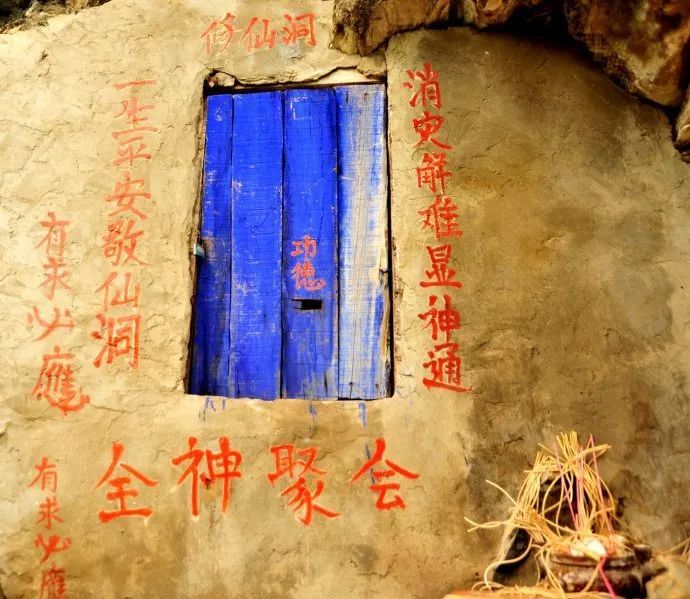 修仙洞
消灾解难显神通
一生平安敬仙洞
有求必應
功德
全神聚会
有求必應